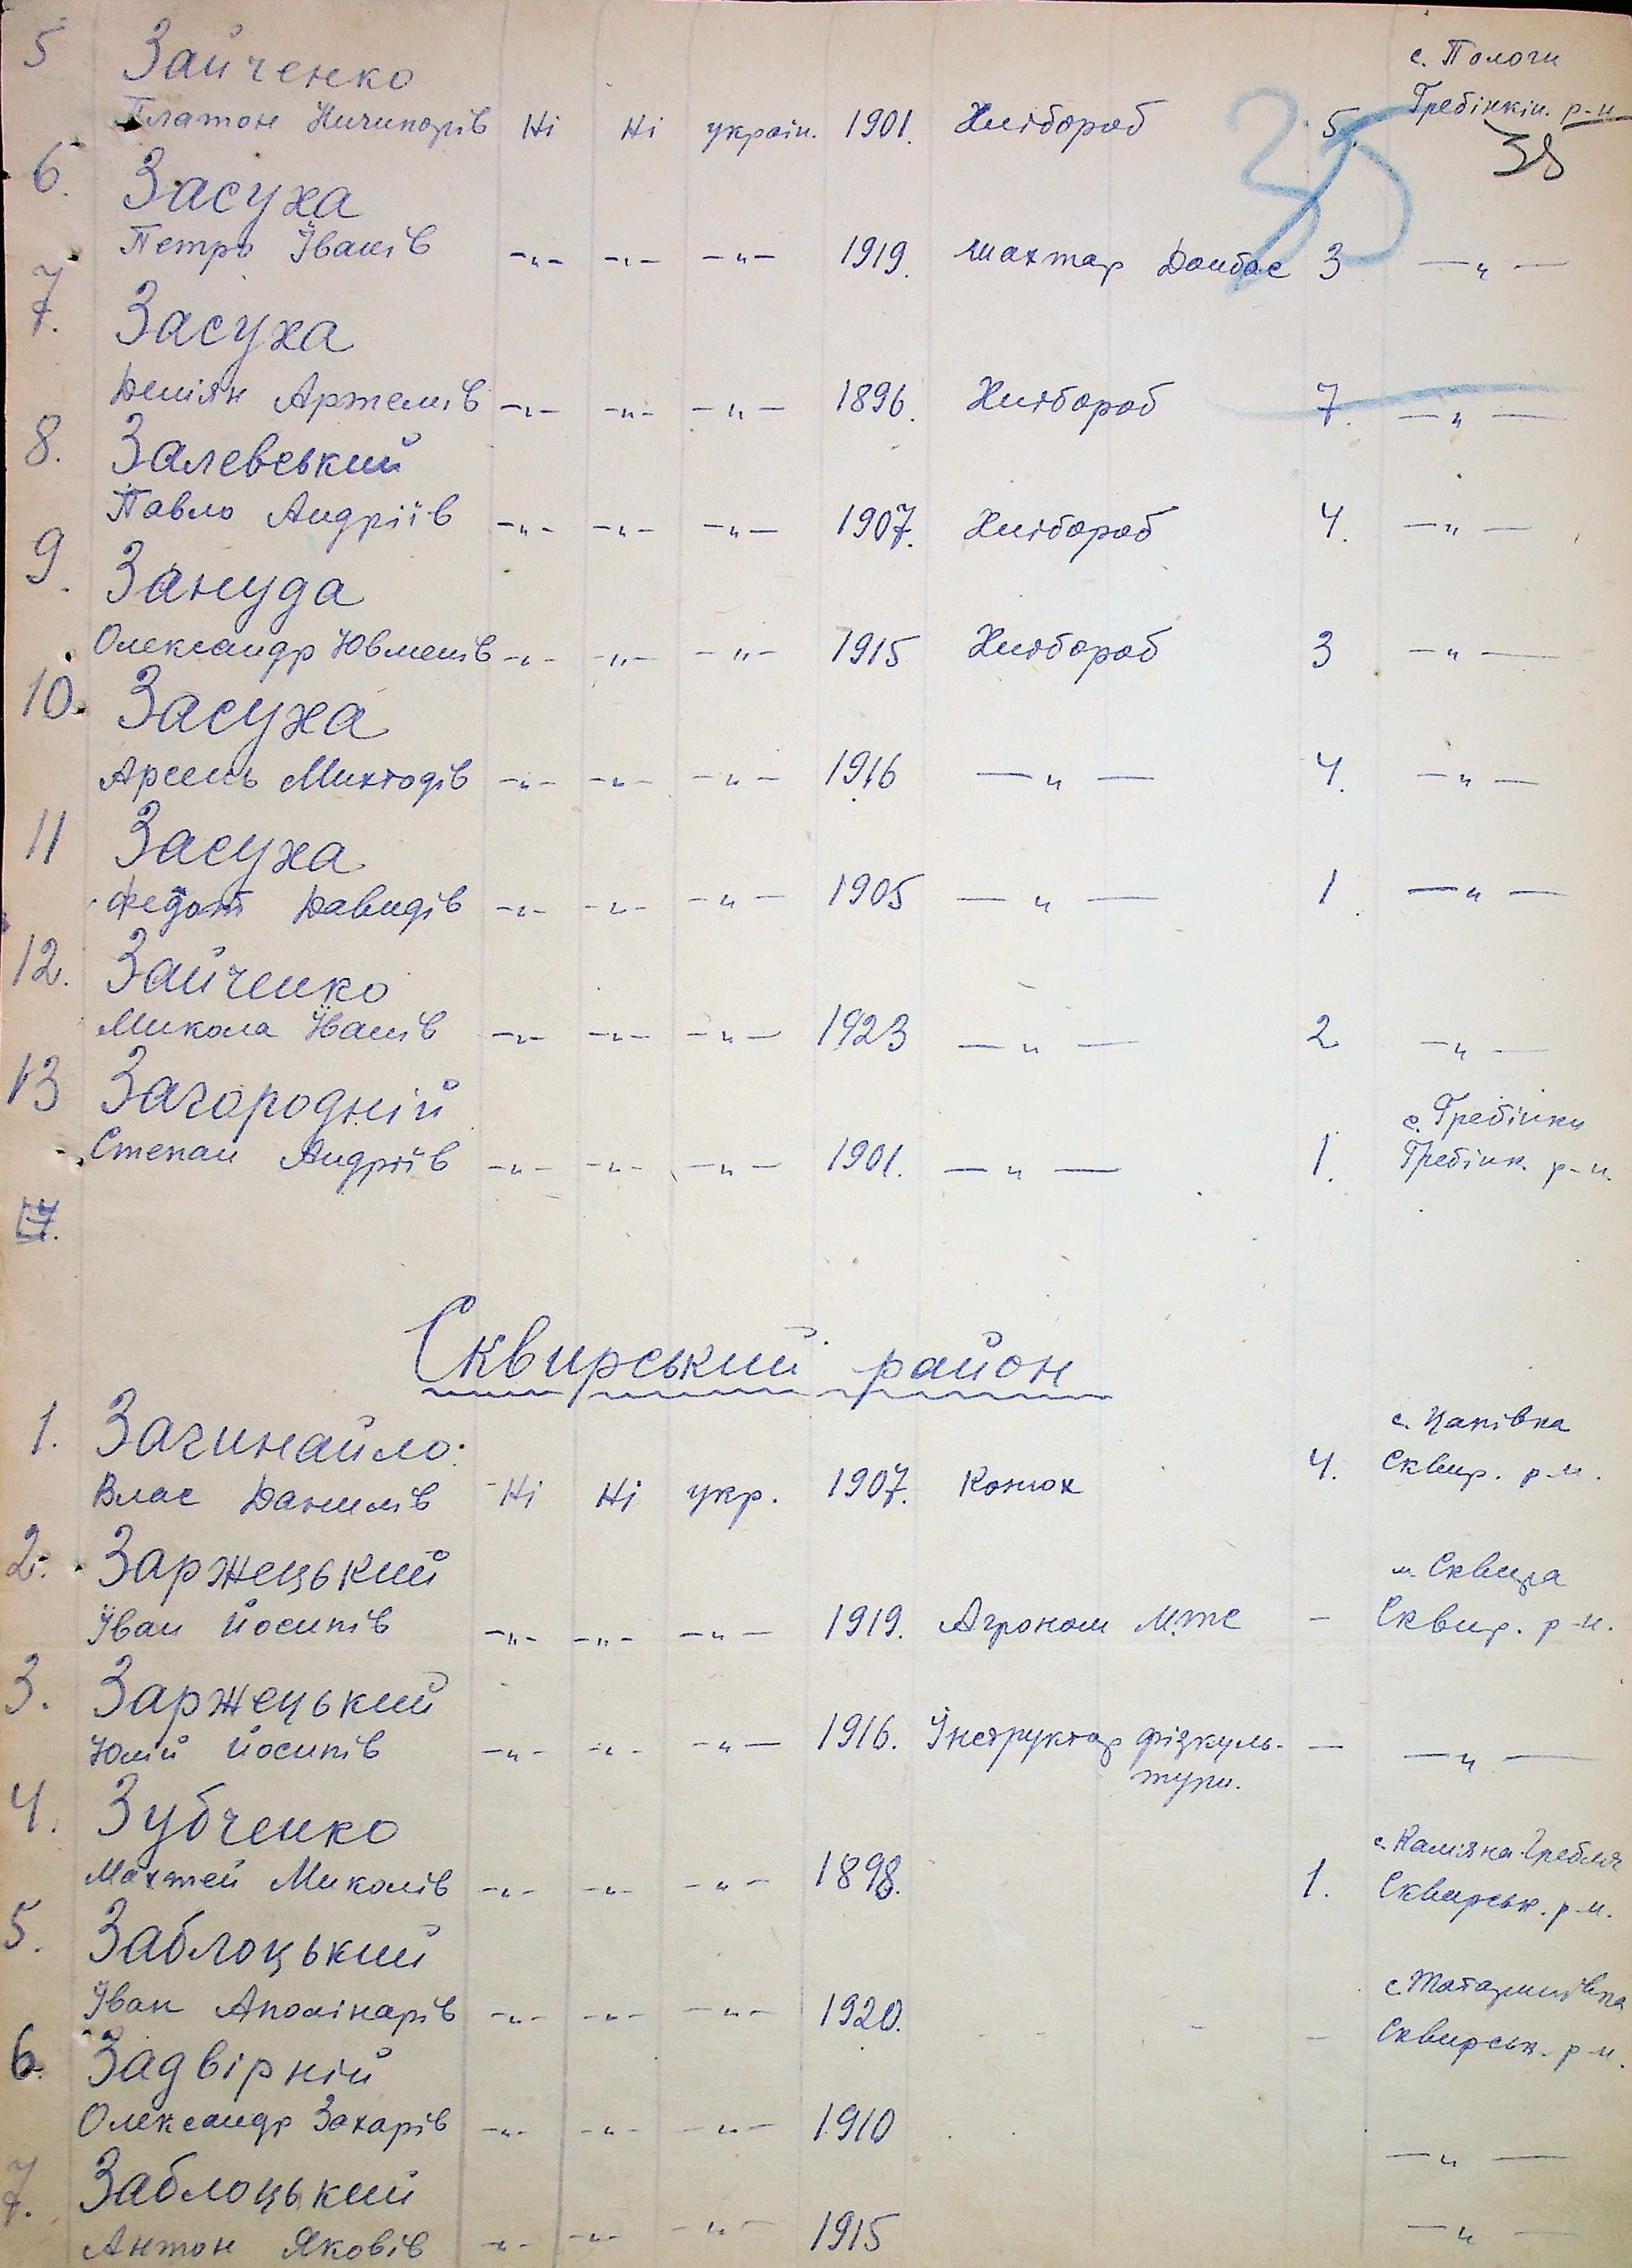 5 Зайченко с. Пологи
Платон Ничипорів Ні Ні україн. 1901. Хлібороб 5. Гребінкін. р-н
35 38
6. Засуха
Петро Іванів -"- -"- -"- 1919. шахтар Донбас 3 -"-
7. Засуха
Демʼян Артемів -"- -"- -"- 1896. Хлібороб 7. -"-
8. Залевський
Павло Андріїв -"- -"- -"- 1907. Хлібороб 4. -"-
9. Зануда
Олександр Ювменів -"- -"- -"- 1915 Хлібороб 3 -"-
10. Засуха
Арсень Михтодів -"- -"- -"- 1916 -"- 4. -"-
11 Засуха
Федот Давидів -"- -"- -"- 1905 -"- 1. -"-
12. Зайченко
Микола Іванів -"- -"- -"- 1923 -"- 2 -"-
13 Загородній с. Гребінки
Степан Андріїв -"- -"- -"- 1901. -"- 1. Гребінк. р-н.
Сквирський район
1. Зачинайло с. Цапівка
Влас Данилів Ні Ні укр. 1907. Конюх 4. Сквир. р-н.
2. Заржецький м. Сквира
Іван Йосипів -"- -"- -"- 1919. Агроном М.Т.С - Сквир. р-н.
3. Заржецький
Юлій Йосипів -"- -"- -"- 1916. Інструктор фізкуль- - -"-
тури.
4. Зубченко с. Камʼяна-Гребля
Махтей Миколів -"- -"- -"- 1898. 1. Сквирськ. р-н.
5. Заблоцький с. Татаринівка
Іван Аполінарів -"- -"- -"- 1920. - Сквирськ. р-н.
6. Задвірній
Олександр Захарів -"- -"- -"- 1910 -"-
7. Заблоцький
Антон Яковів -"- -"- -"- 1915 -"-